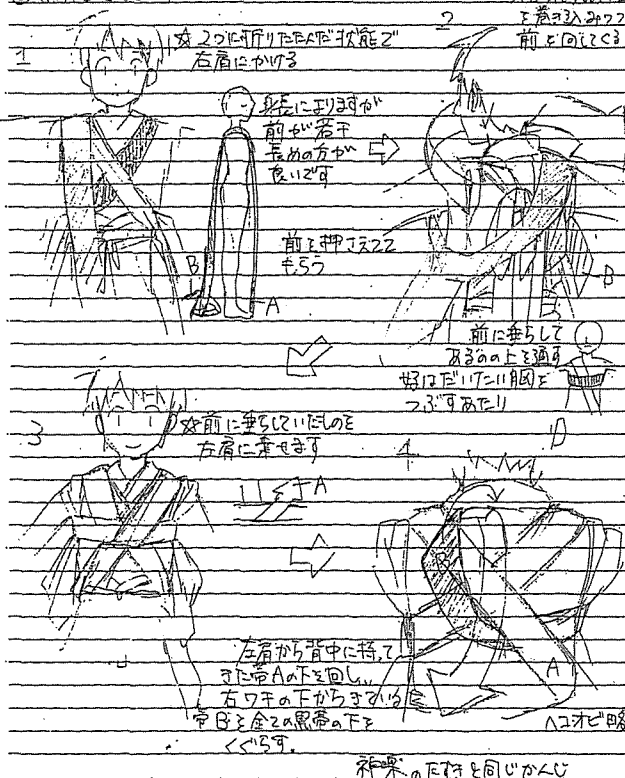 1
☆2つに折りたたんだ状態で
右肩にかける
身長によりますが
前が若干
長めの方が
良いです
前を押さえてて
もらう
B
A
2
を巻き込みつつ
前を回してくる
B
前に垂らして
あるのの上を通す
つぶすあたり
3
☆前に垂らしていたものを
左肩に乗せます
A
左肩から背中に持って
きた帯Aの下を回し、
右ワキの下からきている
帯Bを全ての黒帯の下を
くぐらす。
4
D
B
A
ヘコオビ略
神楽のたすきと同じかんじ